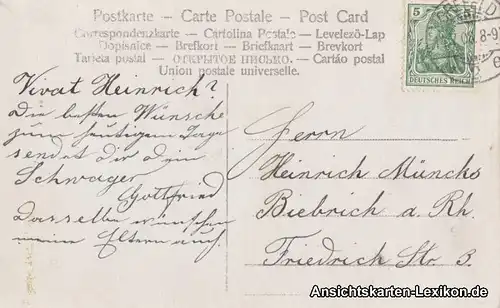 Postkarte - Carte Postale - Post Card
Correspondenzkarte - Cartolina Postale - Levelező-Lap
Dopisnice - Brefkort - Briefkaart - Brevkort
Tarjeta postal - ОТКРЫТОЕ ПИСЬМО. - Cartão postal
Union postale universelle.
5
DEUTSCHES REICH
8-9
Vivat Heinrich!
Die besten Wünsche
zum heutigen Tage
sendet Dir Dein
Schwager
Gottfried
Dasselbe wünschen
meine Eltern auch.
Herrn
Heinrich Münchs
Biebrich a. Rh.
Friedrich Str. 3.
Ansichtskarten-Lexikon.de